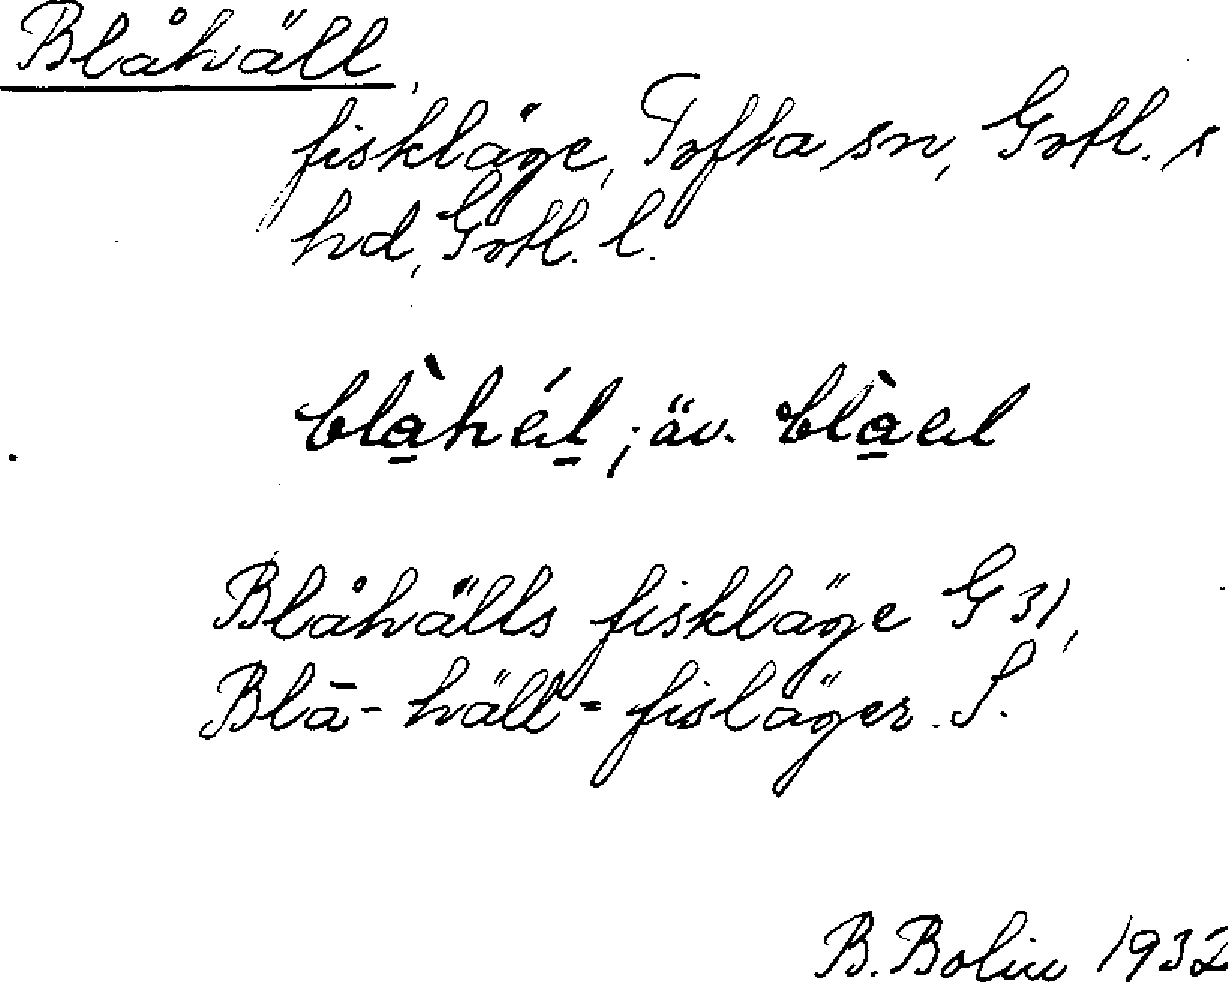 Blåhäll,
fiskläge, Tofta sn, Gotl. s
hd, Gotl. l.
blàhǽl; äv. blàæl
Blåhälls fiskläge G 31,
Blā-häll-fisläger. S.
B. Bolin 1932